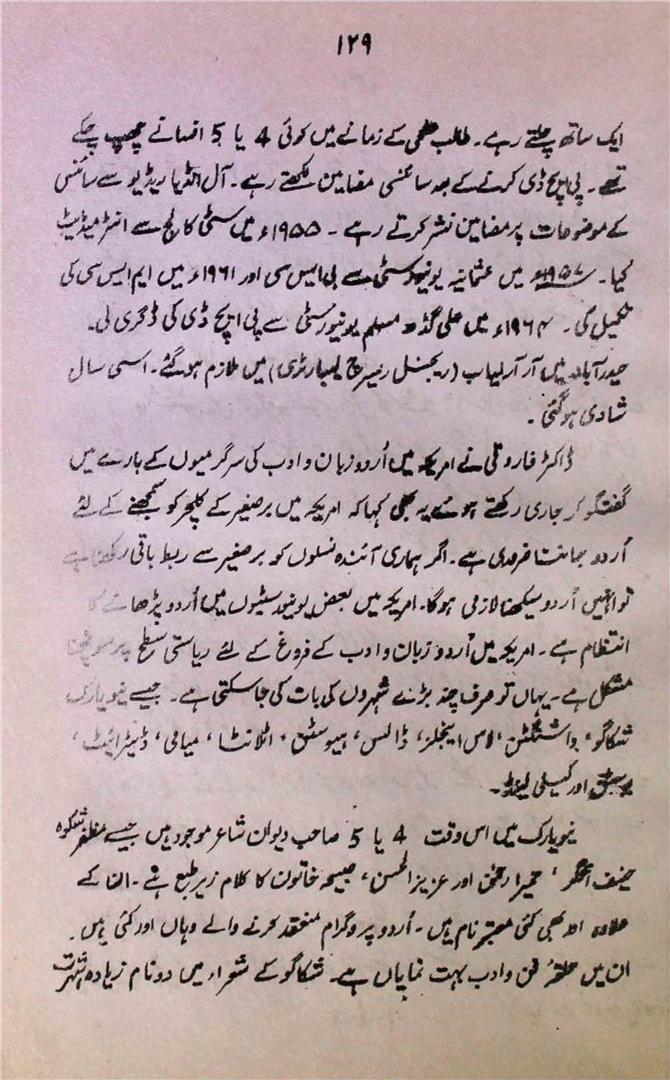 ۱۲۹
ایک ساتھ چلتے رہے۔ طالب علمی کے زمانے میں کوئی 4 یا 5 افسانے چھپ چکے
تھے۔ پی ایچ ڈی کرنے کے بعد سائنسی مضامین لکھتے رہے۔ آل انڈیا ریڈیو سے سائنس
کے موضوعات پر مضامین نشر کرتے رہے ۔ ۱۹۵۵ء میں سٹی کالج سے انٹرمیڈیٹ
کیا۔ ۱۹۵۷ء میں عثمانیہ یونیورسٹی سے بی ایس سی اور ۱۹۶۱ء میں ایم ایس سی کی
تکمیل کی۔ ۱۹۶۴ء میں علی گڈھ مسلم یونیورسٹی سے پی ایچ ڈی کی ڈگری لی۔
حیدرآباد میں آر آر لیاب (ریجنل ریسرچ لیبارٹری) میں ملازم ہو گئے۔ اسی سال
شادی ہو گئی ۔
ڈاکٹر فاروقی نے امریکہ میں اُردو زبان و ادب کی سرگرمیوں کے بارے میں
گفتگو کر جاری رکھتے ہوئے یہ بھی کہا کہ امریکہ میں برصغیر کے کلچر کو سمجھنے کے لئے
اُردو جاننا ضروری ہے۔ اگر ہماری آئندہ نسلوں کو برصغیر سے ربط باقی رکھنا ہے
تو انہیں اُردو سیکھنا لازمی ہوگا۔ امریکہ میں بعض یونیورسٹیوں میں اُردو پڑھانے کا
انتظام ہے۔ امریکہ میں اُردو زبان و ادب کے فروغ کے لئے ریاستی سطح پر سوچنا
مشکل ہے۔ یہاں تو صرف چند بڑے شہروں کی بات کی جاسکتی ہے۔ جیسے نیویارک
شکاگو، واشنگٹن، لاس اینجلز، ڈالس، ہیوسٹن، اٹلانٹا، میامی، ڈیٹرائیٹ،
بوسٹن اور کیلی لینڈ۔
نیویارک میں اس وقت 4 یا 5 صاحب دیوان شاعر موجود ہیں جیسے مظفر شکوہ
حنیف اخگر، حمیرا رحمٰن اور عزیز الحسن، صبیحہ خاتون کا کلام زیر طبع ہے۔ ان کے
علاوہ اور بھی کئی معتبر نام ہیں۔ اُردو پروگرام منعقد کرنے والے وہاں اور کئی ہیں۔
ان میں حلقۂ فن و ادب بہت نمایاں ہے۔ شکاگو کے شعراء میں دو نام زیادہ شہرت